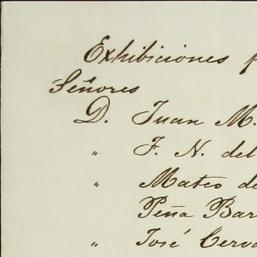 Exhibiciones p
Señores
D. Juan M.
" F. N. del
" Mateo de
Peña Bar
" José Cerva